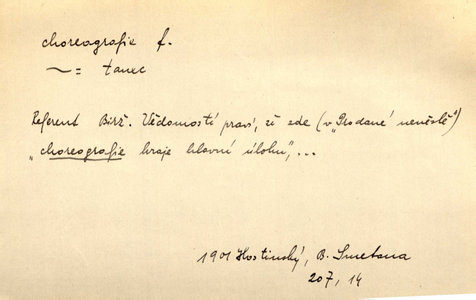 choreografie f.
~ = tanec
Referent Birž. Vědomostí praví, že zde (v „Prodané nevěstě“)
„choreografie hraje hlavní úlohu“, ...
1901 Hostinský, B. Smetana
207, 14